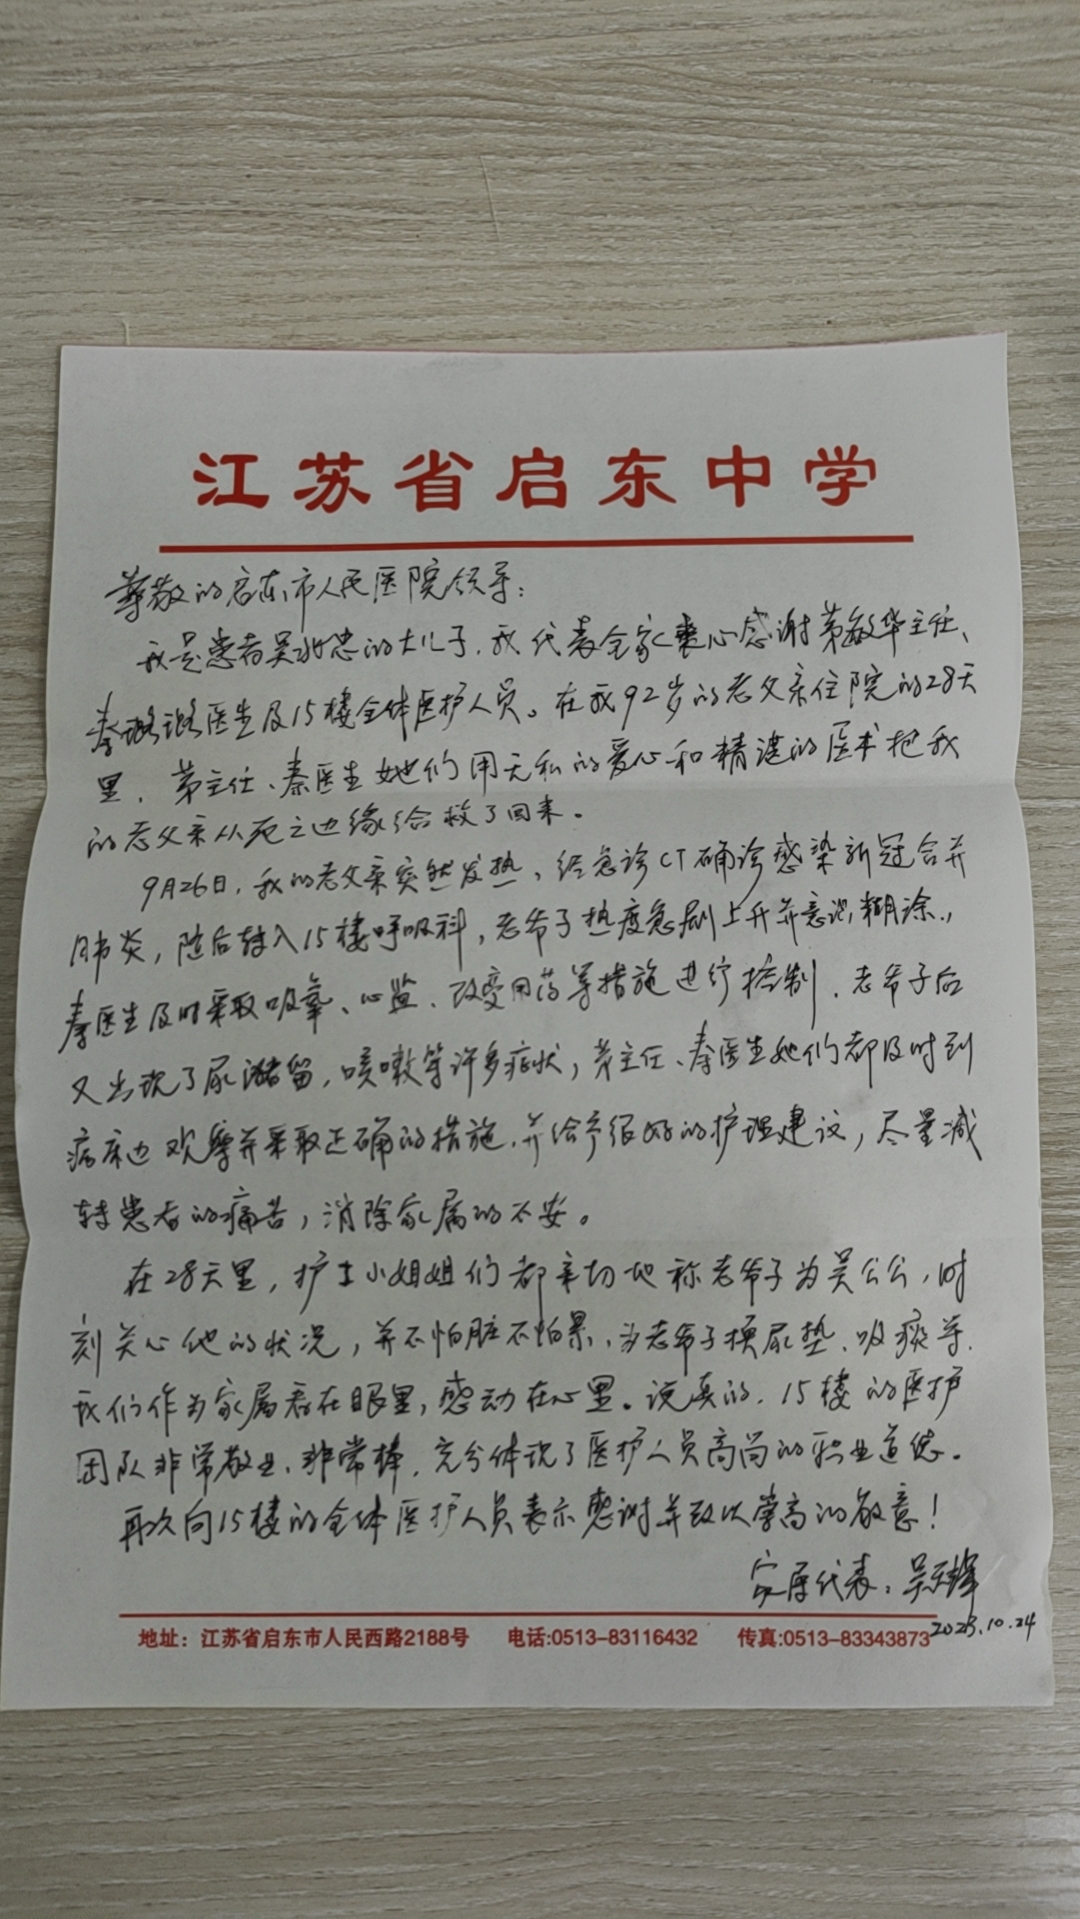 江苏省启东中学
尊敬的启东市人民医院领导：
我是患者吴 忠的大儿子，我代表全家衷心感谢茅敏华主任、
秦璐璐医生及15楼全体医护人员。在我92岁的老父亲住院的28天
里，茅主任、秦医生她们用无私的爱心和精湛的医术把我
的老父亲从死亡边缘给救了回来。
9月26日，我的老父亲突然发热，经急诊CT确诊感染新冠合并
肺炎，随后转入15楼呼吸科，老爷子热度急剧上升并意识糊涂，
秦医生及时采取吸氧、心监、改变用药等措施进行控制，老爷子后
又出现了尿潴留，咳嗽等许多症状，茅主任、秦医生她们都及时到
病床边观察并采取正确的措施，并给予很好的护理建议，尽量减
轻患者的痛苦，消除家属的不安。
在28天里，护士小姐姐们都亲切地称老爷子为吴公公，时
刻关心他的状况，并不怕脏不怕累，为老爷子换尿垫、吸痰等，
我们作为家属看在眼里，感动在心里。说真的，15楼的医护
团队非常敬业、非常棒，充分体现了医护人员高尚的职业道德。
再次向15楼的全体医护人员表示感谢并致以崇高的敬意！
家属代表：吴 锋
2023.10.24
地址：江苏省启东市人民西路2188号 电话:0513-83116432 传真:0513-83343873